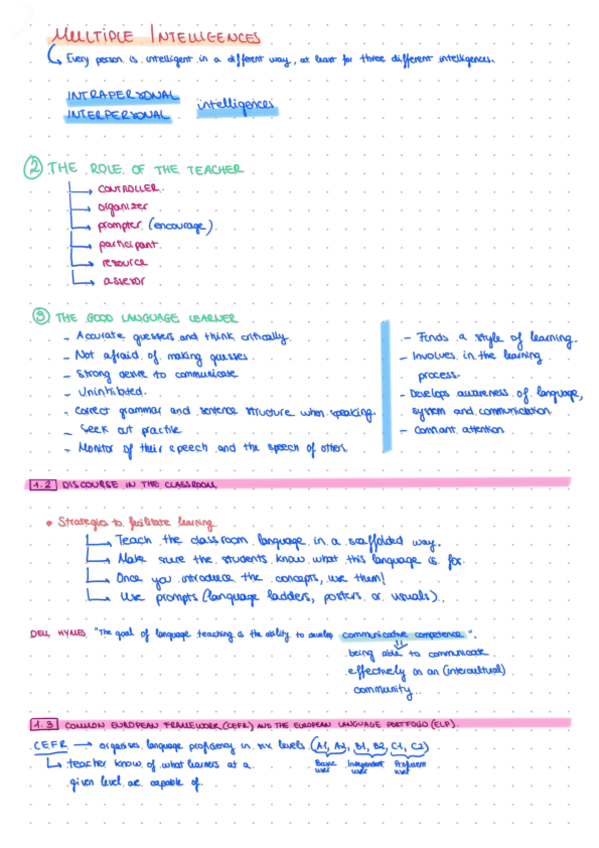 MULTIPLE INTELLIGENCES
Every person is intelligent in a different way, at least for three different intelligences.
INTRAPERSONAL
INTERPERSONAL
intelligences
2 THE ROLE OF THE TEACHER
CONTROLLER.
organizer
prompter (encourage)
participant
resource
assessor
3 THE GOOD LANGUAGE LEARNER
- Accurate guessers and think critically.
- Not afraid of making guesses
- Strong desire to communicate
- Uninhibited.
- Correct grammar and sentence structure when speaking.
- Seek out practise
- Monitor of their speech and the speech of others.
- Finds a style of learning.
- Involves in the learning
process.
- Develops awareness of language,
system and communication
- Constant attention.
1.2 DISCOURSE IN THE CLASSROOM
• Strategies to facilitate learning
Teach the classroom language in a scaffolded way.
Make sure the students know what this language is for.
Once you introduce the concepts, use them!
Use prompts (language ladders, posters or visuals).
DELL HYMES "The goal of language teaching is the ability to develop communicative competence".
being able to communicate
effectively in an (intercultural)
community.
1.3 COMMON EUROPEAN FRAMEWORK (CEFR) AND THE EUROPEAN LANGUAGE PORTFOLIO (ELP)
CEFR → organises language proficiency in six levels (A1, A2, B1, B2, C1, C2)
Basic user
Independent user
Proficient user
teacher know of what learners at a
given level are capable of.